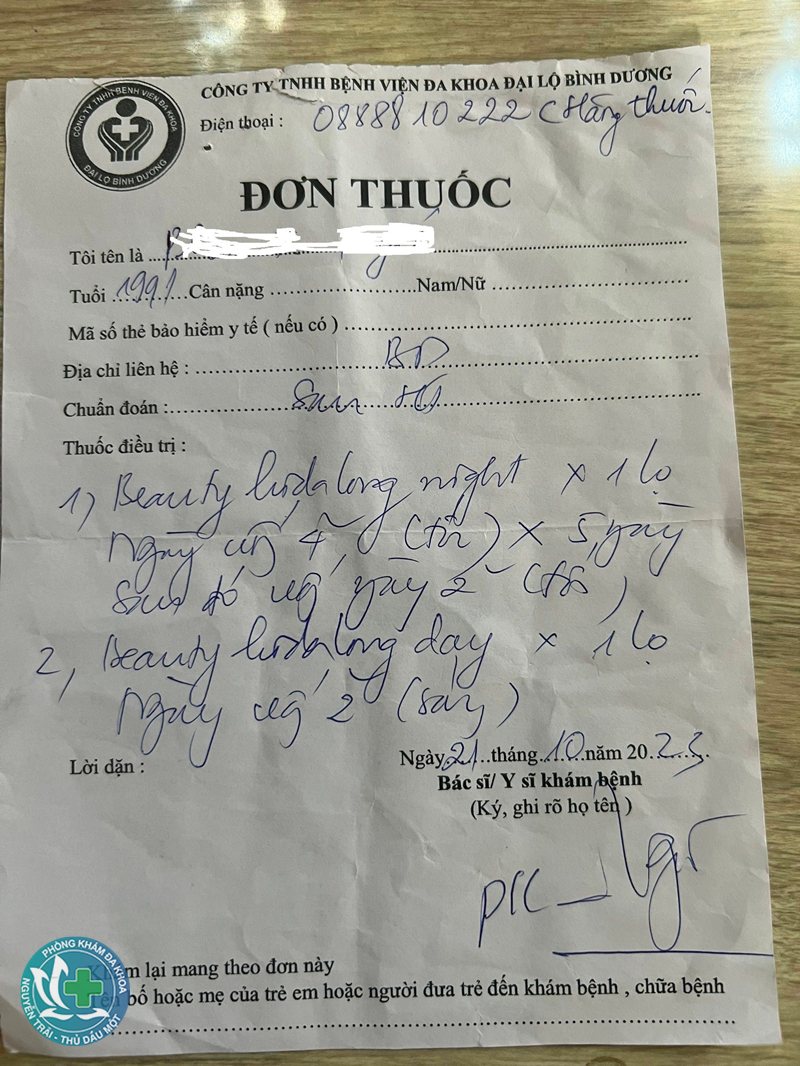 CÔNG TY TNHH BỆNH VIỆN ĐA KHOA
ĐẠI LỘ BÌNH DƯƠNG
CÔNG TY TNHH BỆNH VIỆN ĐA KHOA ĐẠI LỘ BÌNH DƯƠNG
Điện thoại : 0888810222 (Hãng thuốc
ĐƠN THUỐC
Tôi tên là
Tuổi 1991 Cân nặng Nam/Nữ
Mã số thẻ bảo hiểm y tế ( nếu có )
Địa chỉ liên hệ : BD
Chuẩn đoán :
Thuốc điều trị :
1) Beauty night x 1 lọ
Ngày 4 (tối) x 5 ngày
Sau đó ngày 2 (tối)
2, Beauty day x 1 lọ
Ngày 2 (sáng)
Lời dặn :
Ngày 21 tháng 10 năm 2023
Bác sĩ/ Y sĩ khám bệnh
(Ký, ghi rõ họ tên )
lại mang theo đơn này
bố hoặc mẹ của trẻ em hoặc người đưa trẻ đến khám bệnh , chữa bệnh
PHÒNG KHÁM ĐA KHOA
NGUYỄN TRÃI - THỦ DẦU MỘT